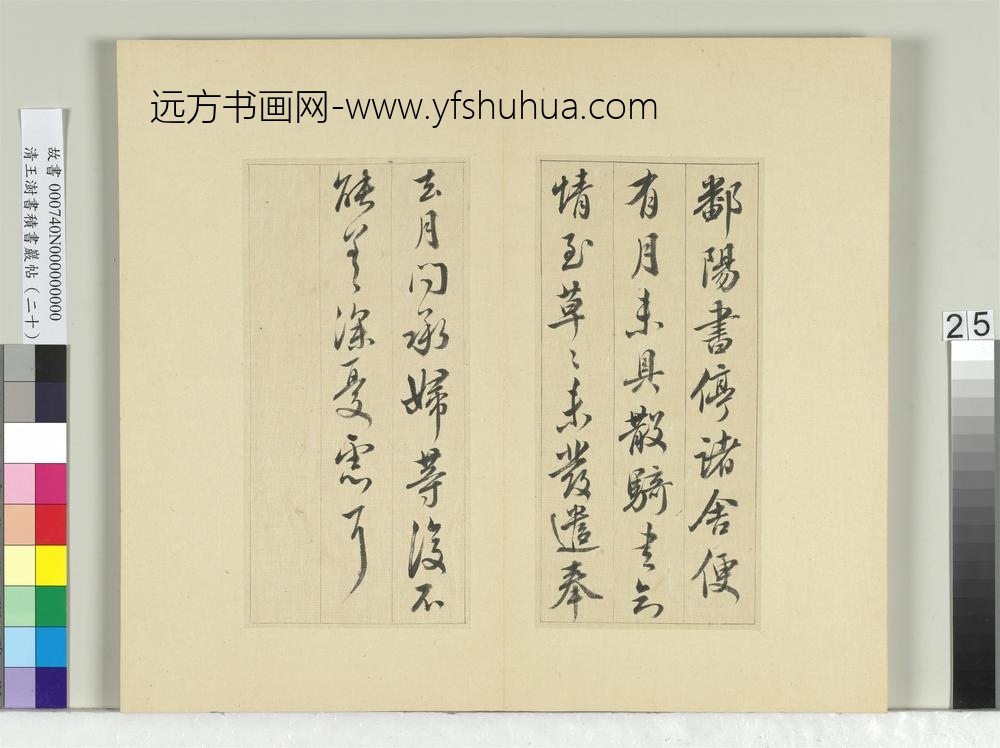 远方书画网-www.yfshuhua.com
鄱陽書停諸舍便
有月未具散騎書
情至草〻未發遣奉
去月問承婦等復不
能差深憂慮耳
故書 000740N000000000
清王澍書積書巖帖(二十)
25